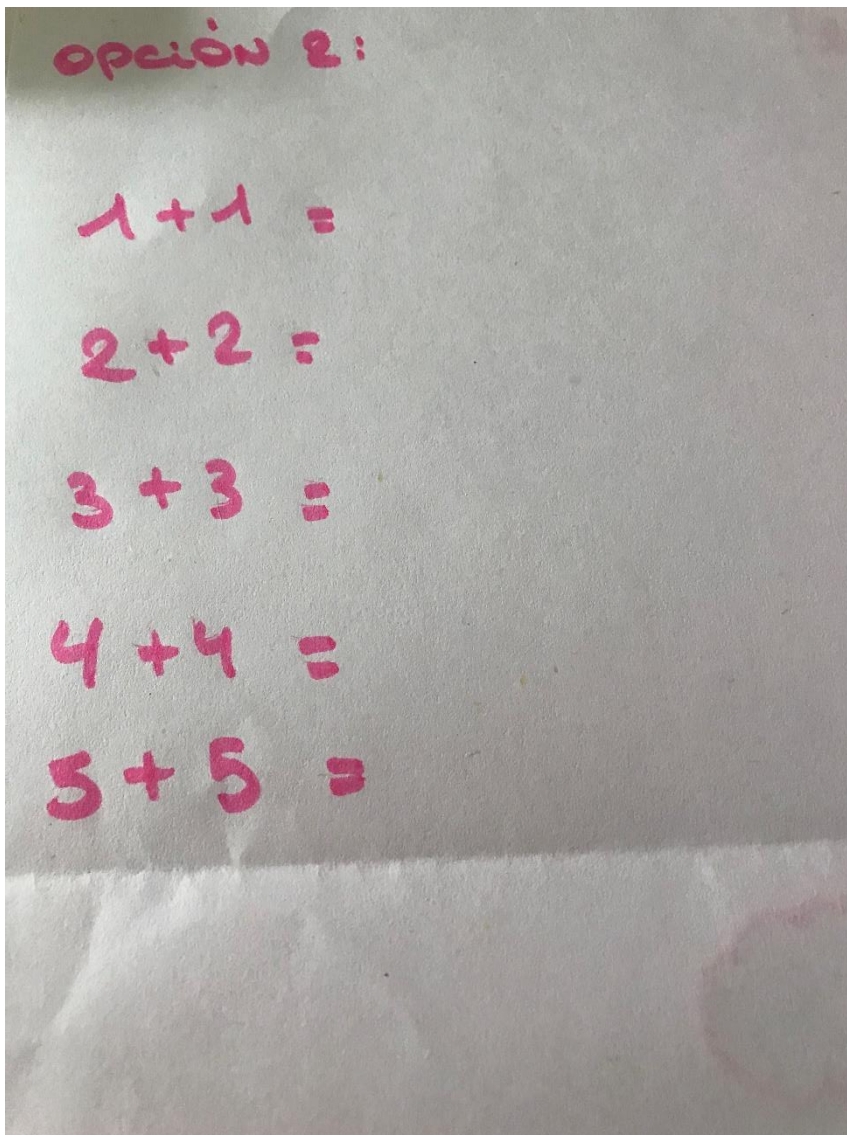 OPCIÓN 2:
1+1 =
2+2 =
3+3 =
4+4 =
5+5 =